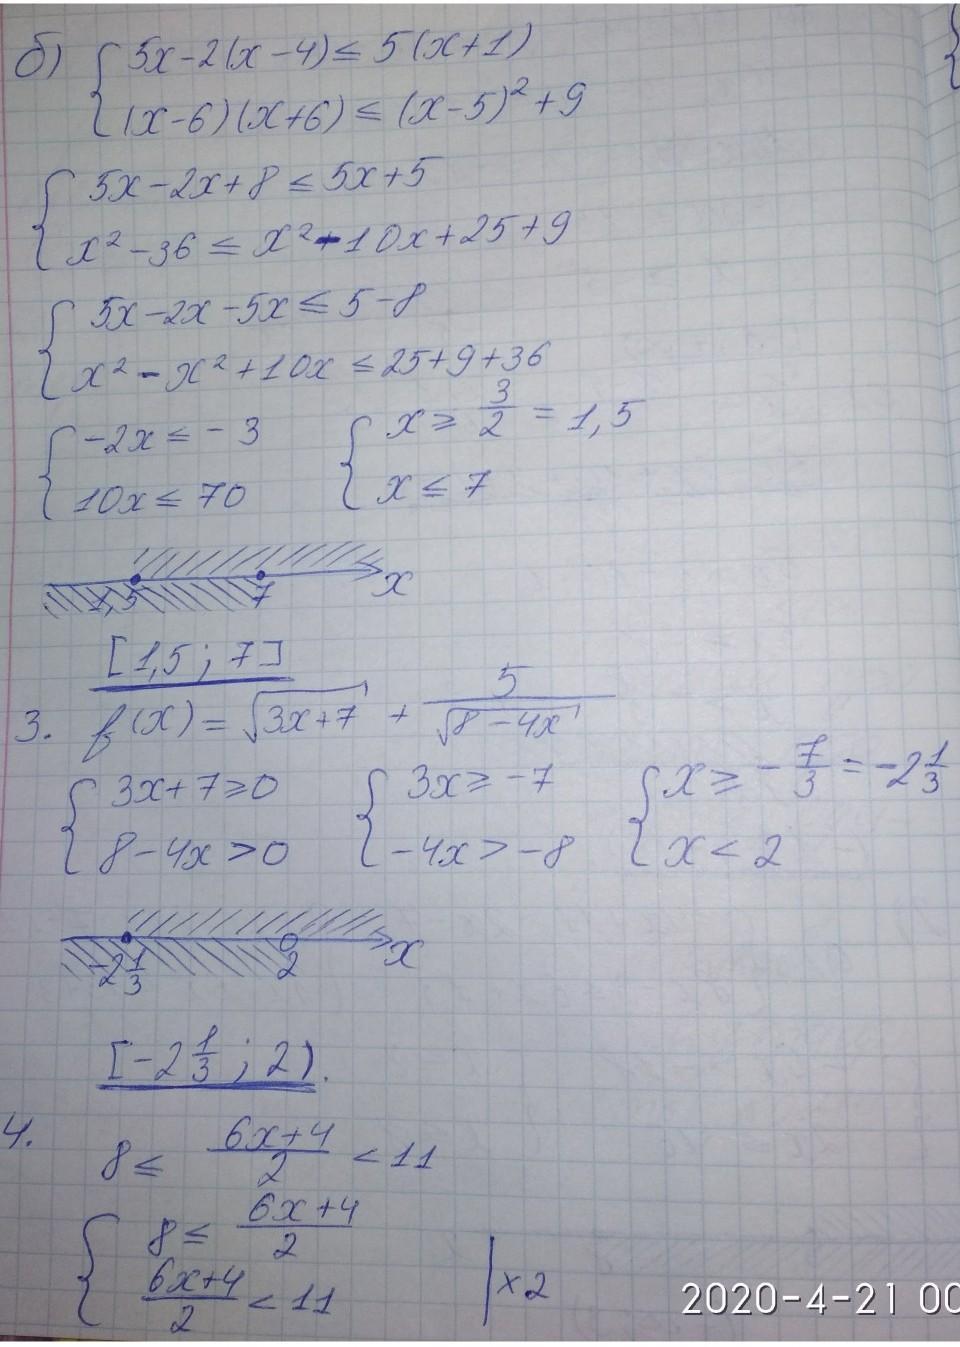 б) { 5x-2(x-4) ≤ 5(x+1)
(x-6)(x+6) ≤ (x-5)² + 9
{ 5x-2x+8 ≤ 5x+5
x² -36 ≤ x² -10x+25+9
{ 5x-2x-5x ≤ 5-8
x² - x² +10x ≤ 25+9+36
{ -2x ≤ -3 { x ≥ 3/2 = 1,5
10x ≤ 70 x ≤ 7
1,5 7 x
[1,5 ; 7]
3. f(x) = √(3x+7) + 5/√(8-4x)
{ 3x+7 ≥ 0 { 3x ≥ -7 { x ≥ -7/3 = -2 1/3
8-4x > 0 -4x > -8 x < 2
-2 1/3 2 x
[-2 1/3 ; 2).
4. 8 ≤ (6x+4)/2 < 11
{ 8 ≤ (6x+4)/2
(6x+4)/2 < 11 | ×2
2020-4-21 00